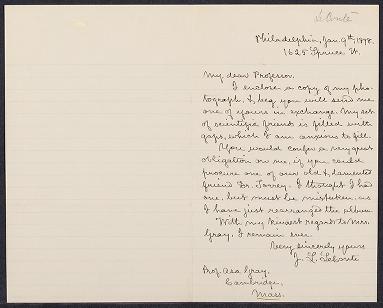 LeConte
Philadelphia, Jan. 9th, 1878.
1625 Spruce St.
My dear Professor.
I enclose a copy of my pho-
tograph, & beg you will send me
one of yours in exchange. My set
of scientific friends is filled with
gaps, which I am anxious to fill.
You would confer a very great
obligation on me, if you could
procure one of our old & lamented
friend Dr. Torrey. I thought I had
one, but must be mistaken, as
I have just rearranged the album.
With my kindest regards to Mrs.
Gray, I remain ever
Very sincerely yours
J. L. LeConte
Prof. Asa Gray,
Cambridge,
Mass.